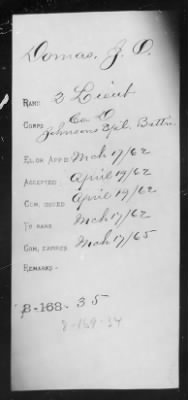 Domas, J. O.
RANK 2 Lieut
CORPS Co D
Johnsons Spl. Battn.
EL. OR APP'D Mch 17/62
ACCEPTED April 19/62
COM. ISSUED April 19/62
TO RANK Mch 17/62
COM. EXPIRES Mch 17/65
REMARKS -
8-168-35
8-169-34